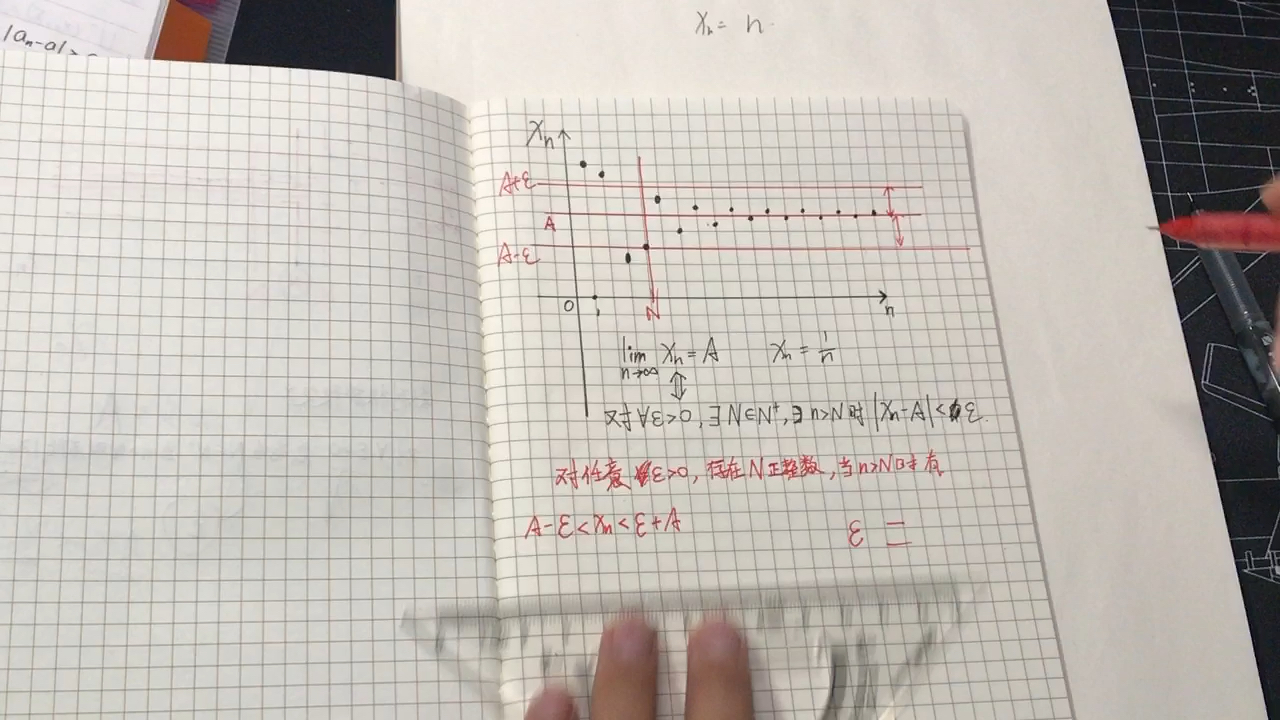 |aₙ-a|>
Xₙ = n
Xₙ
A+ε
A
A-ε
0
1
N
n
lim Xₙ = A Xₙ = 1/n
n→∞
⇕
对∀ε>0, ∃N∈N⁺, ∃n>N时|Xₙ-A|<ε.
对任意ε>0, 存在N正整数, 当n>N时有
A-ε<Xₙ<ε+A
ε =